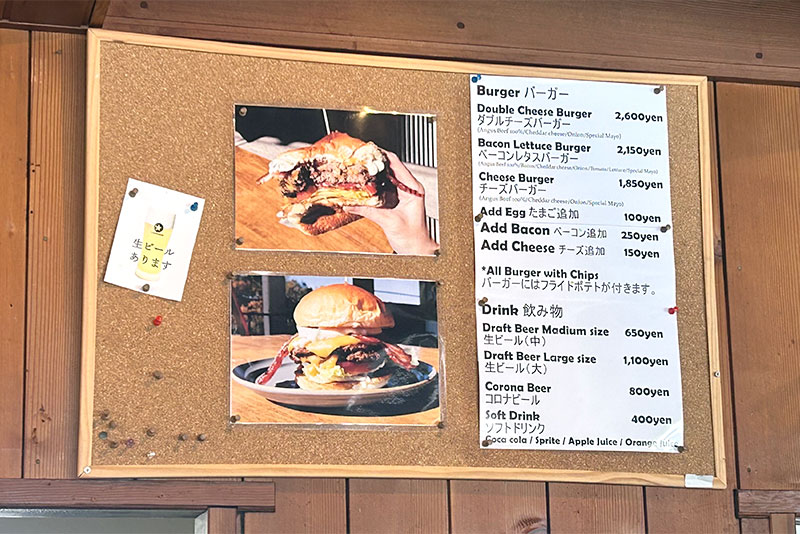 生ビール
あります
Burger バーガー
Double Cheese Burger 2,600yen
ダブルチーズバーガー
(Angus Beef 100%/Cheddar cheese/Onion/Special Mayo)
Bacon Lettuce Burger 2,150yen
ベーコンレタスバーガー
(Angus Beef 100%/Bacon/Cheddar cheese/Onion/Tomato/Lettuce/Special Mayo)
Cheese Burger 1,850yen
チーズバーガー
(Angus Beef 100%/Cheddar cheese/Onion/Special Mayo)
Add Egg たまご追加 100yen
Add Bacon ベーコン追加 250yen
Add Cheese チーズ追加 150yen
*All Burger with Chips
バーガーにはフライドポテトが付きます。
Drink 飲み物
Draft Beer Medium size 650yen
生ビール(中)
Draft Beer Large size 1,100yen
生ビール(大)
Corona Beer 800yen
コロナビール
Soft Drink 400yen
ソフトドリンク
Coca cola / Sprite / Apple Juice / Orange juice